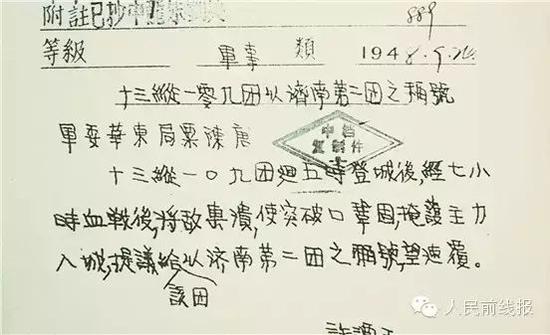 附註已抄中
889
等級 軍事 類 1948.9.
十三縱一零九团以濟南第二团之稱號
軍委華東局粟陳唐
中档
复制件
十三縱一〇九团廻五時登城後,經七小
時血戰後,將敌擊潰,使突破口鞏固,掩護主力
入城,提議給以济南第二团之稱號,望速覆。
該团
人民前线报